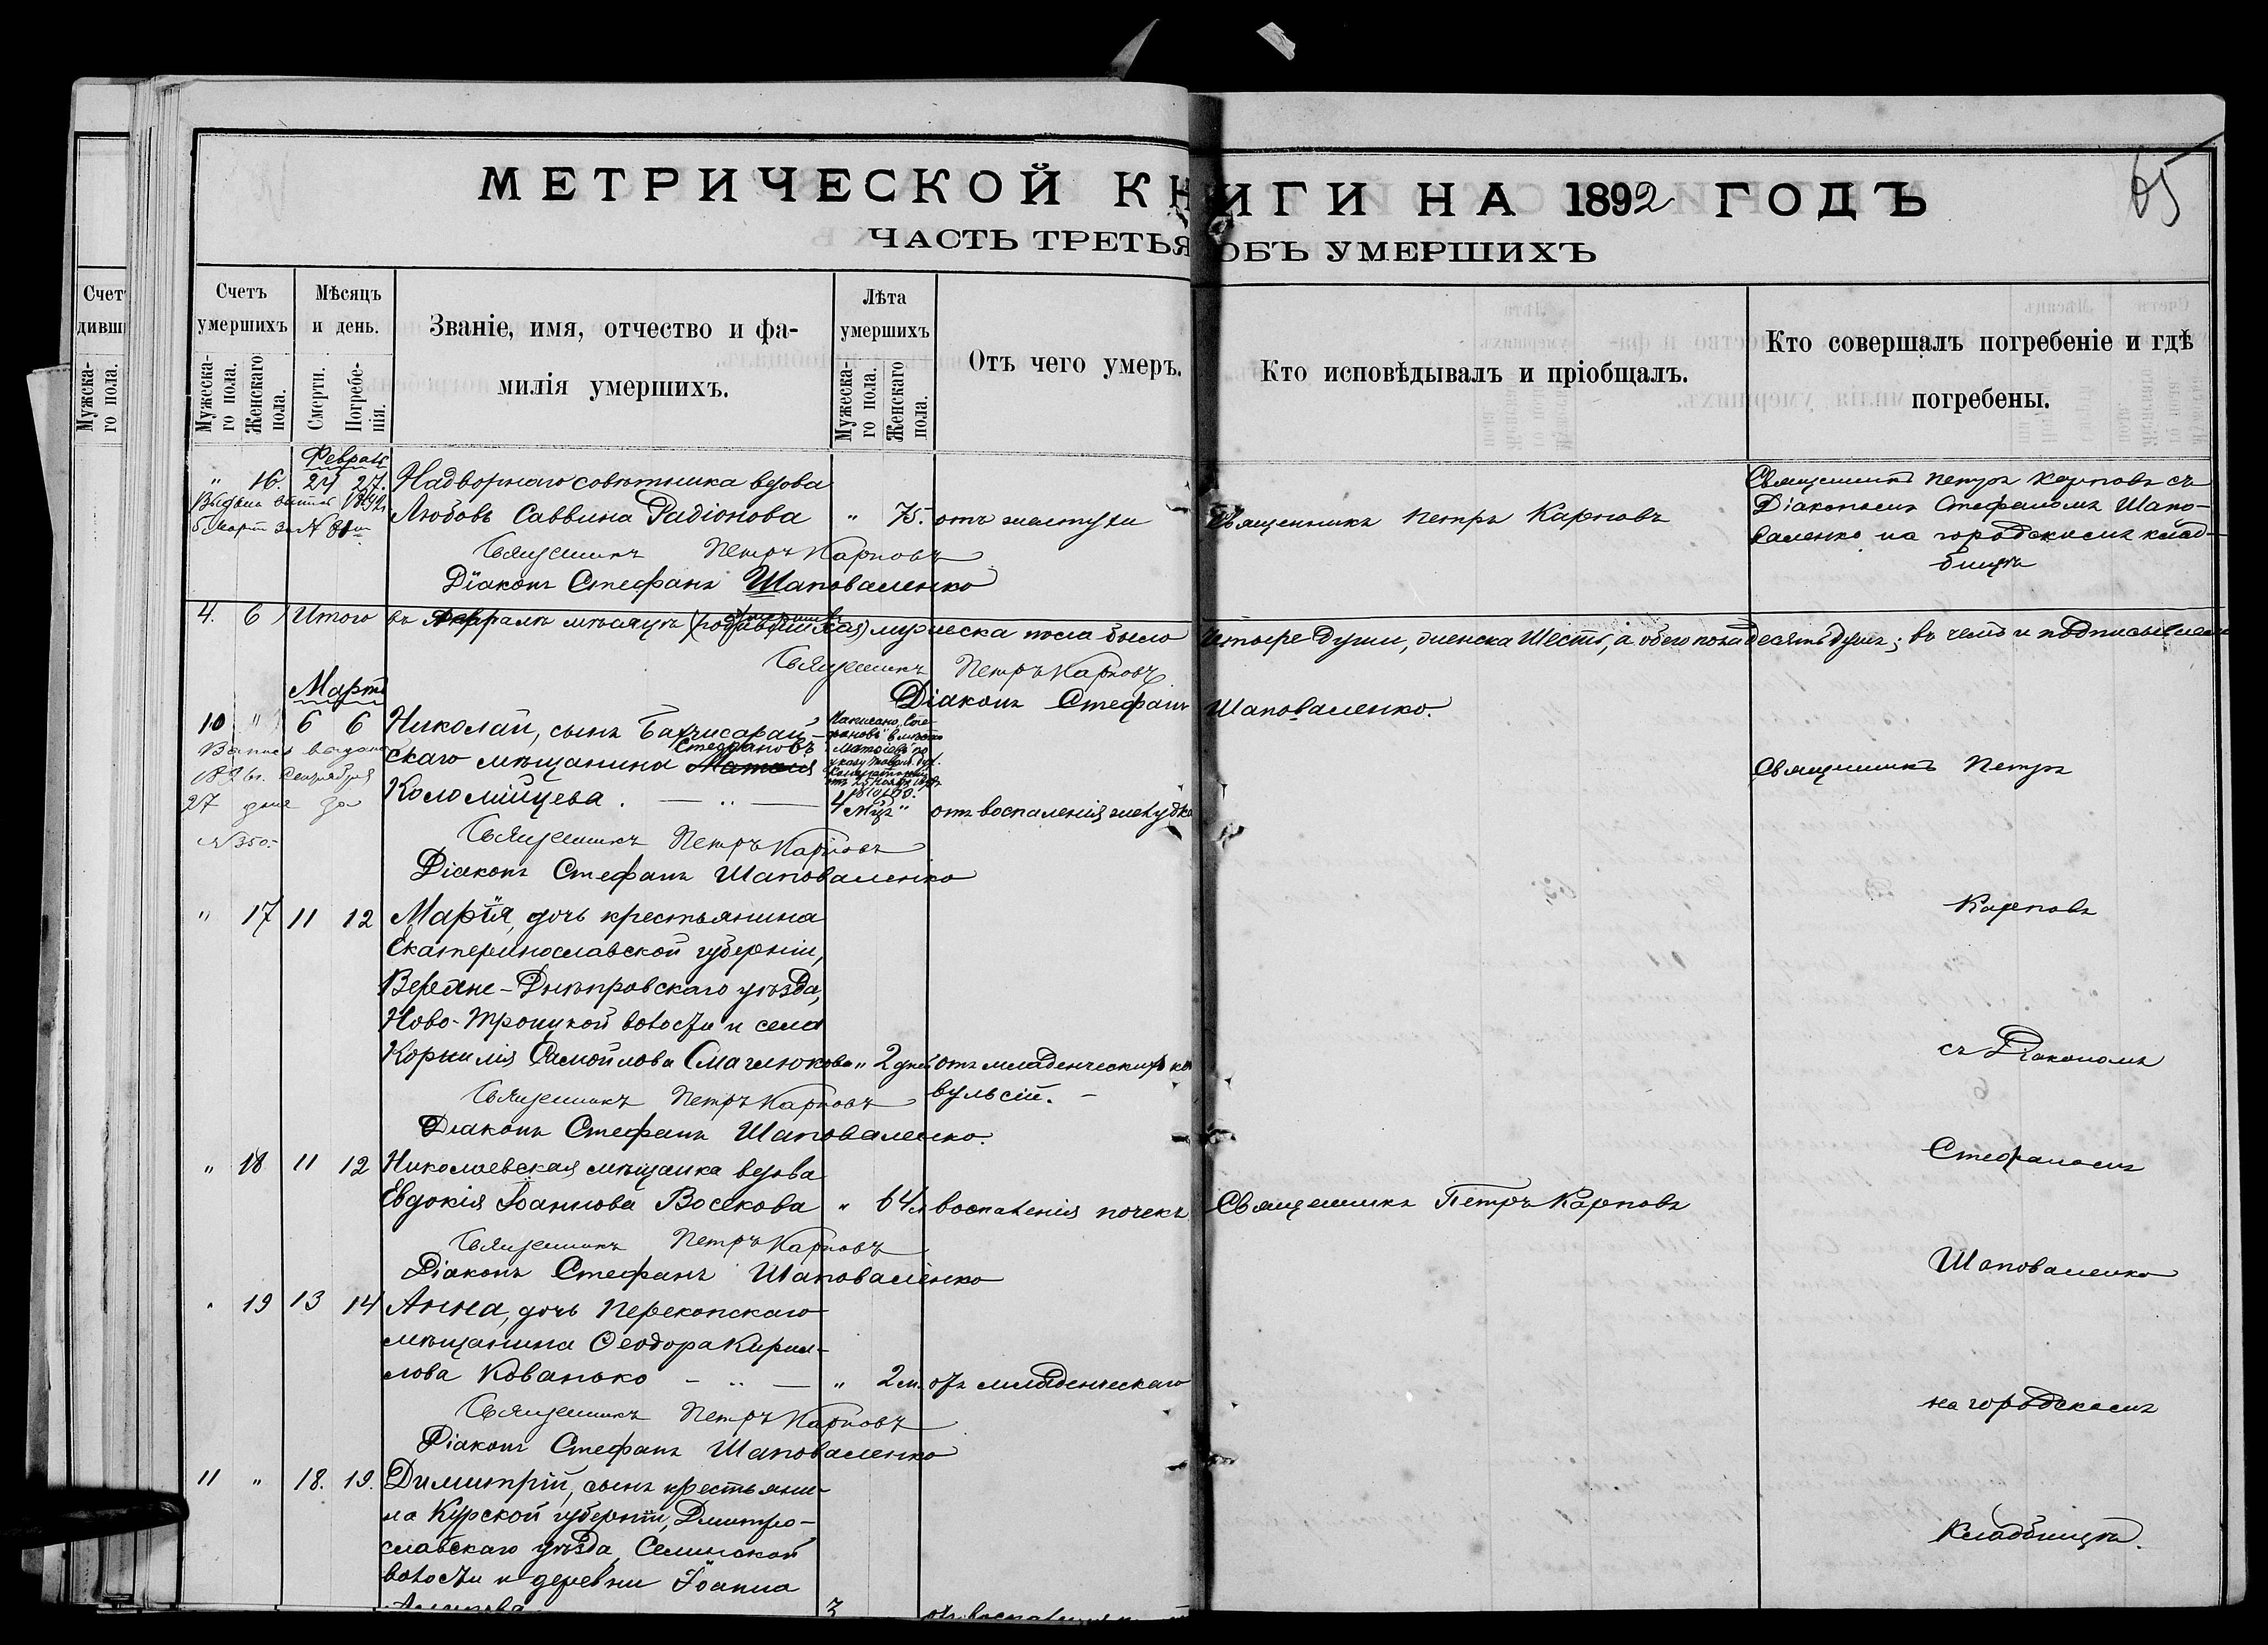 МЕТРИЧЕСКОЙ КНИГИ НА 1892 ГОДЪ
65
ЧАСТЬ ТРЕТЬЯ ОБЪ УМЕРШИХЪ
Счетъ умершихъ
Мужеска-го пола.
Женскаго пола.
Мѣсяцъ и день.
Смерти.
Погребе-нія.
Званіе, имя, отчество и фа-
милія умершихъ.
Лѣта умершихъ
Мужеска-го пола.
Женскаго пола.
Отъ чего умеръ.
Кто исповѣдывалъ и пріобщалъ.
Кто совершалъ погребеніе и гдѣ
погребены.
Февраль
" 16. 24 27. Надворнаго совѣтника вдова
Любовь Саввина Радіонова " 75. отъ желтухи Священникъ Петръ Карповъ
Священникъ Петръ Карповъ съ
Діакономъ Стефаномъ Шапо-
валенко на городскомъ клад-
бищѣ
Священникъ Петръ Карповъ
Діаконъ Стефанъ Шаповаленко
4. 6 Итого въ Февралѣ мѣсяцѣ умершихъ мужеска пола было четыре души, женска шесть, а обего пола десять душъ; въ чемъ и подписываемся
Священникъ Петръ Карповъ
Діаконъ Стефанъ Шаповаленко.
Мартъ
10 " 6 6 Николай, сынъ Бахчисарай-
Стефановъ
скаго мѣщанина
Коломійцева. 4 мца " отъ воспаленія желудка
27 дня за
№ 350.
Священникъ Петръ Карповъ
Діаконъ Стефанъ Шаповаленко
" 17 11 12 Марія, дочь крестьянина
Екатеринославской губерніи,
Верхне-Днѣпровскаго уѣзда,
Ново-Троицкой волости и села
Корнилія Самойлова Смаглюкова " 2 дней отъ младенческихъ кон
вульсій.
Священникъ Петръ Карповъ
Діаконъ Стефанъ Шаповаленко.
" 18 11 12 Николаевская мѣщанка вдова
Евдокія Іоаннова Восекова " 64 воспаленія почекъ Священникъ Петръ Карповъ
Священникъ Петръ Карповъ
Діаконъ Стефанъ Шаповаленко
" 19 13 14 Анна, дочь Перекопскаго
мѣщанина Ѳеодора Кирил-
лова Кованько " 2 м. отъ младенческаго
Священникъ Петръ Карповъ
Діаконъ Стефанъ Шаповаленко
11 " 18. 19. Димитрій, сынъ крестьяни-
на Курской губерніи, Дмитро-
славскаго уѣзда
волости и деревни Іоанна
Священникъ Петръ
Карповъ
съ Діакономъ
Стефаномъ
Шаповаленко
на городскомъ
кладбищѣ.